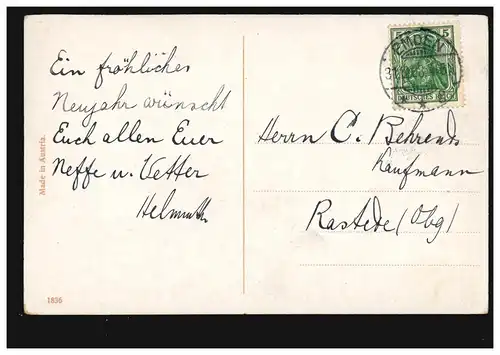 Ein fröhliches
Neujahr wünscht
Euch allen Euer
Neffe u. Vetter
Helmuth
Made in Austria.
1836
5 5
EMDEN
DEUTSCHES
Herrn C. Behrends
Kaufmann
Rastede (Obg)